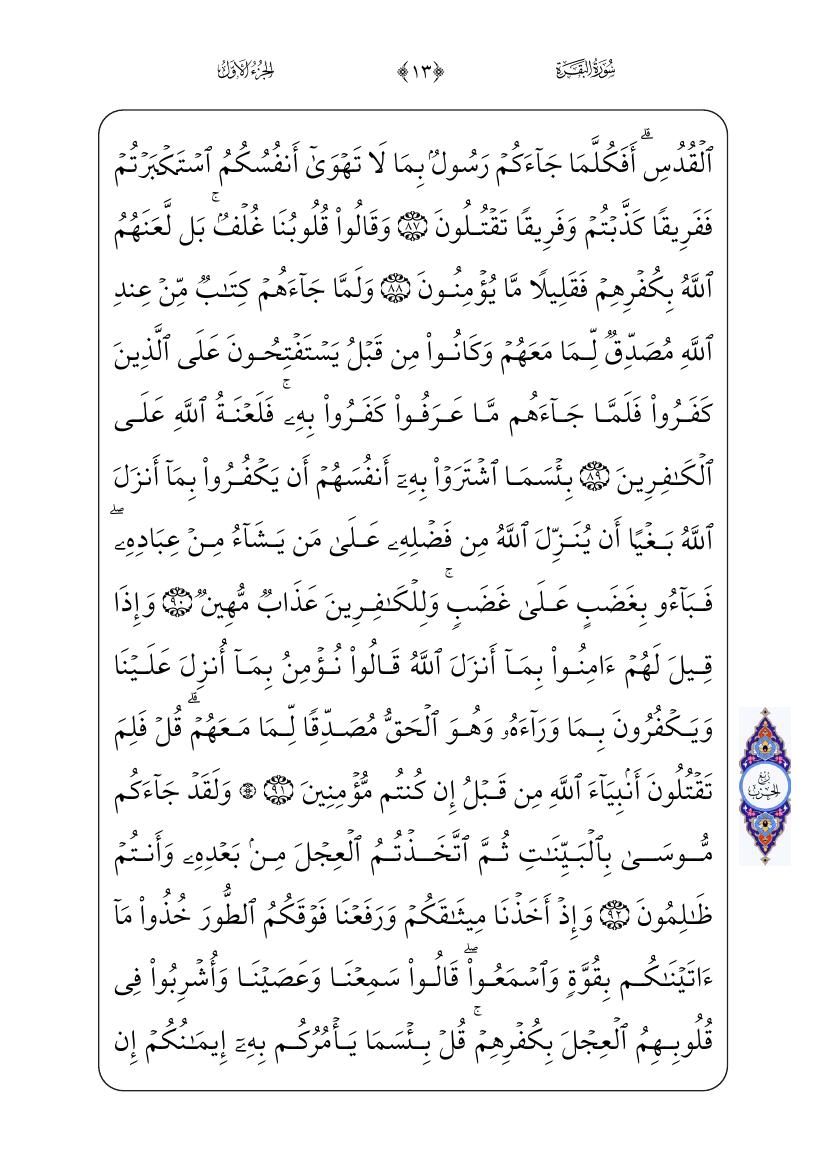 سُورَةُ البَقَرَةِ ﴿١٣﴾ الجُزْءُ الأَوَّلُ
ٱلۡقُدُسِۗ أَفَكُلَّمَا جَآءَكُمۡ رَسُولُۢ بِمَا لَا تَهۡوَىٰٓ أَنفُسُكُمُ ٱسۡتَكۡبَرۡتُمۡ
فَفَرِيقٗا كَذَّبۡتُمۡ وَفَرِيقٗا تَقۡتُلُونَ ٨٧ وَقَالُواْ قُلُوبُنَا غُلۡفُۢۚ بَل لَّعَنَهُمُ
ٱللَّهُ بِكُفۡرِهِمۡ فَقَلِيلٗا مَّا يُؤۡمِنُونَ ٨٨ وَلَمَّا جَآءَهُمۡ كِتَٰبٞ مِّنۡ عِندِ
ٱللَّهِ مُصَدِّقٞ لِّمَا مَعَهُمۡ وَكَانُواْ مِن قَبۡلُ يَسۡتَفۡتِحُونَ عَلَى ٱلَّذِينَ
كَفَرُواْ فَلَمَّا جَآءَهُم مَّا عَرَفُواْ كَفَرُواْ بِهِۦۚ فَلَعۡنَةُ ٱللَّهِ عَلَى
ٱلۡكَٰفِرِينَ ٨٩ بِئۡسَمَا ٱشۡتَرَوۡاْ بِهِۦٓ أَنفُسَهُمۡ أَن يَكۡفُرُواْ بِمَآ أَنزَلَ
ٱللَّهُ بَغۡيًا أَن يُنَزِّلَ ٱللَّهُ مِن فَضۡلِهِۦ عَلَىٰ مَن يَشَآءُ مِنۡ عِبَادِهِۦۖ
فَبَآءُو بِغَضَبٍ عَلَىٰ غَضَبٖۚ وَلِلۡكَٰفِرِينَ عَذَابٞ مُّهِينٞ ٩٠ وَإِذَا
قِيلَ لَهُمۡ ءَامِنُواْ بِمَآ أَنزَلَ ٱللَّهُ قَالُواْ نُؤۡمِنُ بِمَآ أُنزِلَ عَلَيۡنَا
وَيَكۡفُرُونَ بِمَا وَرَآءَهُۥ وَهُوَ ٱلۡحَقُّ مُصَدِّقٗا لِّمَا مَعَهُمۡۗ قُلۡ فَلِمَ
تَقۡتُلُونَ أَنۢبِيَآءَ ٱللَّهِ مِن قَبۡلُ إِن كُنتُم مُّؤۡمِنِينَ ٩١ ۞ وَلَقَدۡ جَآءَكُم
رُبْعُ
الحِزْبِ
مُّوسَىٰ بِٱلۡبَيِّنَٰتِ ثُمَّ ٱتَّخَذۡتُمُ ٱلۡعِجۡلَ مِنۢ بَعۡدِهِۦ وَأَنتُمۡ
ظَٰلِمُونَ ٩٢ وَإِذۡ أَخَذۡنَا مِيثَٰقَكُمۡ وَرَفَعۡنَا فَوۡقَكُمُ ٱلطُّورَ خُذُواْ مَآ
ءَاتَيۡنَٰكُم بِقُوَّةٖ وَٱسۡمَعُواْۖ قَالُواْ سَمِعۡنَا وَعَصَيۡنَا وَأُشۡرِبُواْ فِي
قُلُوبِهِمُ ٱلۡعِجۡلَ بِكُفۡرِهِمۡۚ قُلۡ بِئۡسَمَا يَأۡمُرُكُم بِهِۦٓ إِيمَٰنُكُمۡ إِن